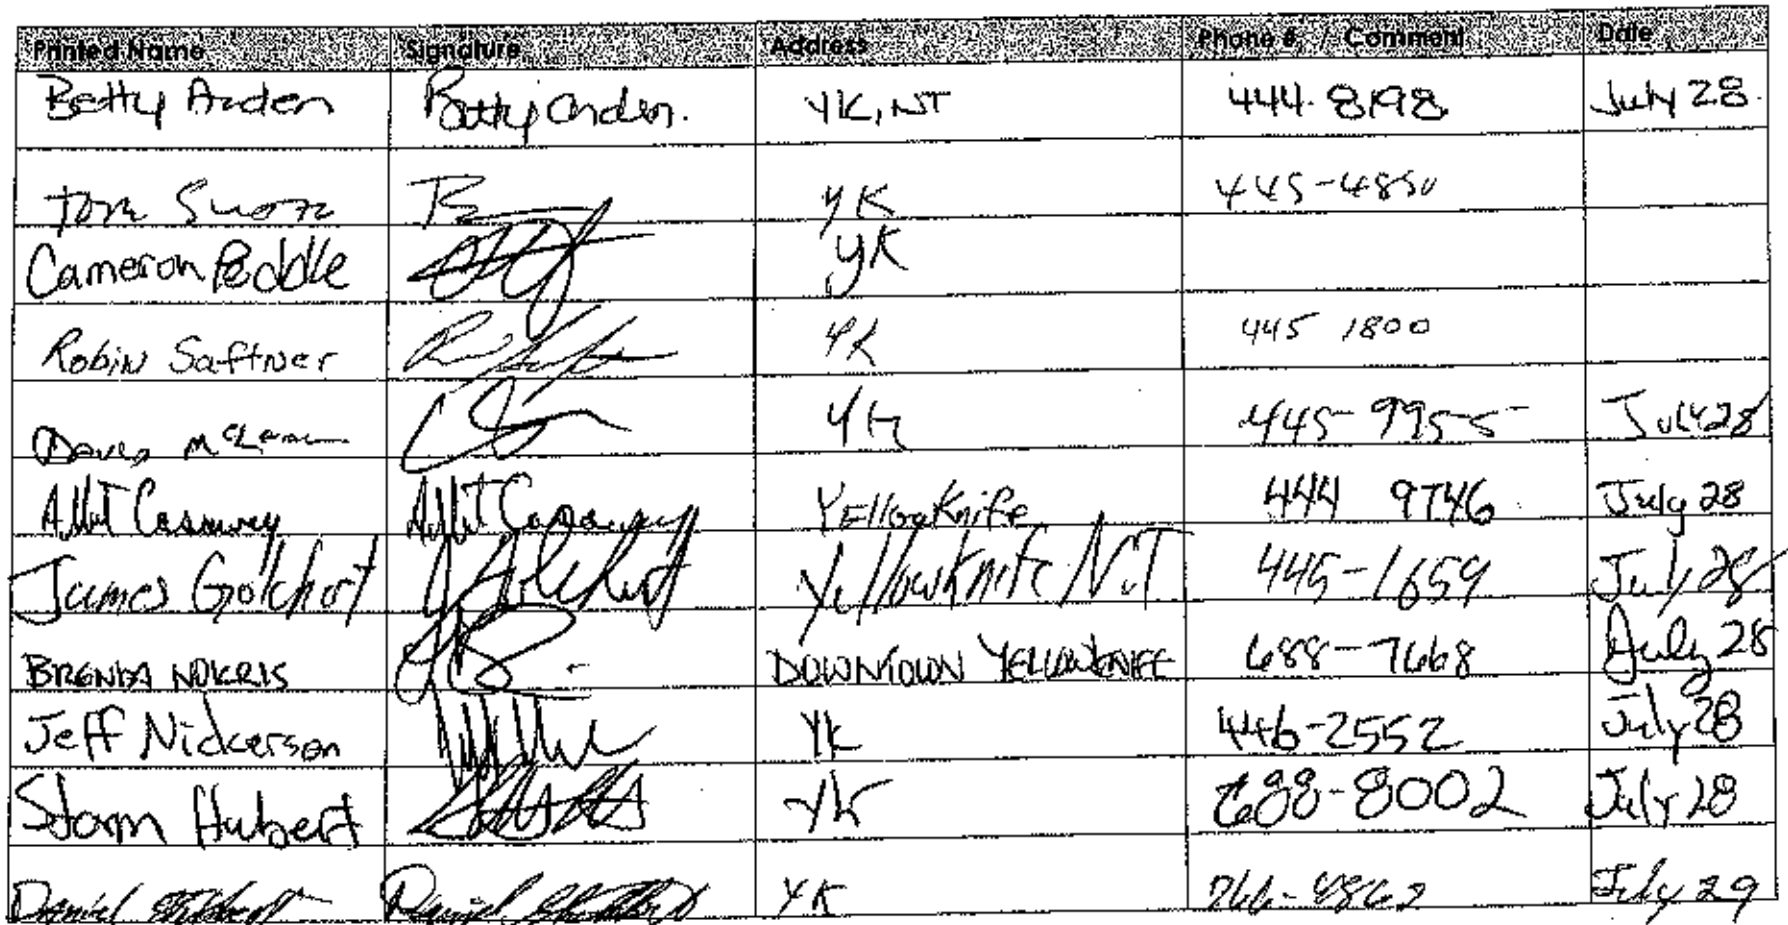 Printed Name Signature Address Phone # / Comment Date
Betty Arden Betty Arden. YK, NT 444-8198 July 28.
Tom YK 445-4850
Cameron Peddle YK
Robin Saftner YK 445 1800
McLean YK 445-9955 July 28
Yellowknife 444 9746 July 28
James Yellowknife NT 445-1659 July 28
BRENDA NORRIS DOWNTOWN YELLOWKNIFE 688-7668 July 28
Jeff Nickerson YK 446-2552 July 28
Storm Hubert YK 688-8002 July 28
Daniel Daniel YK 766-4862 July 29